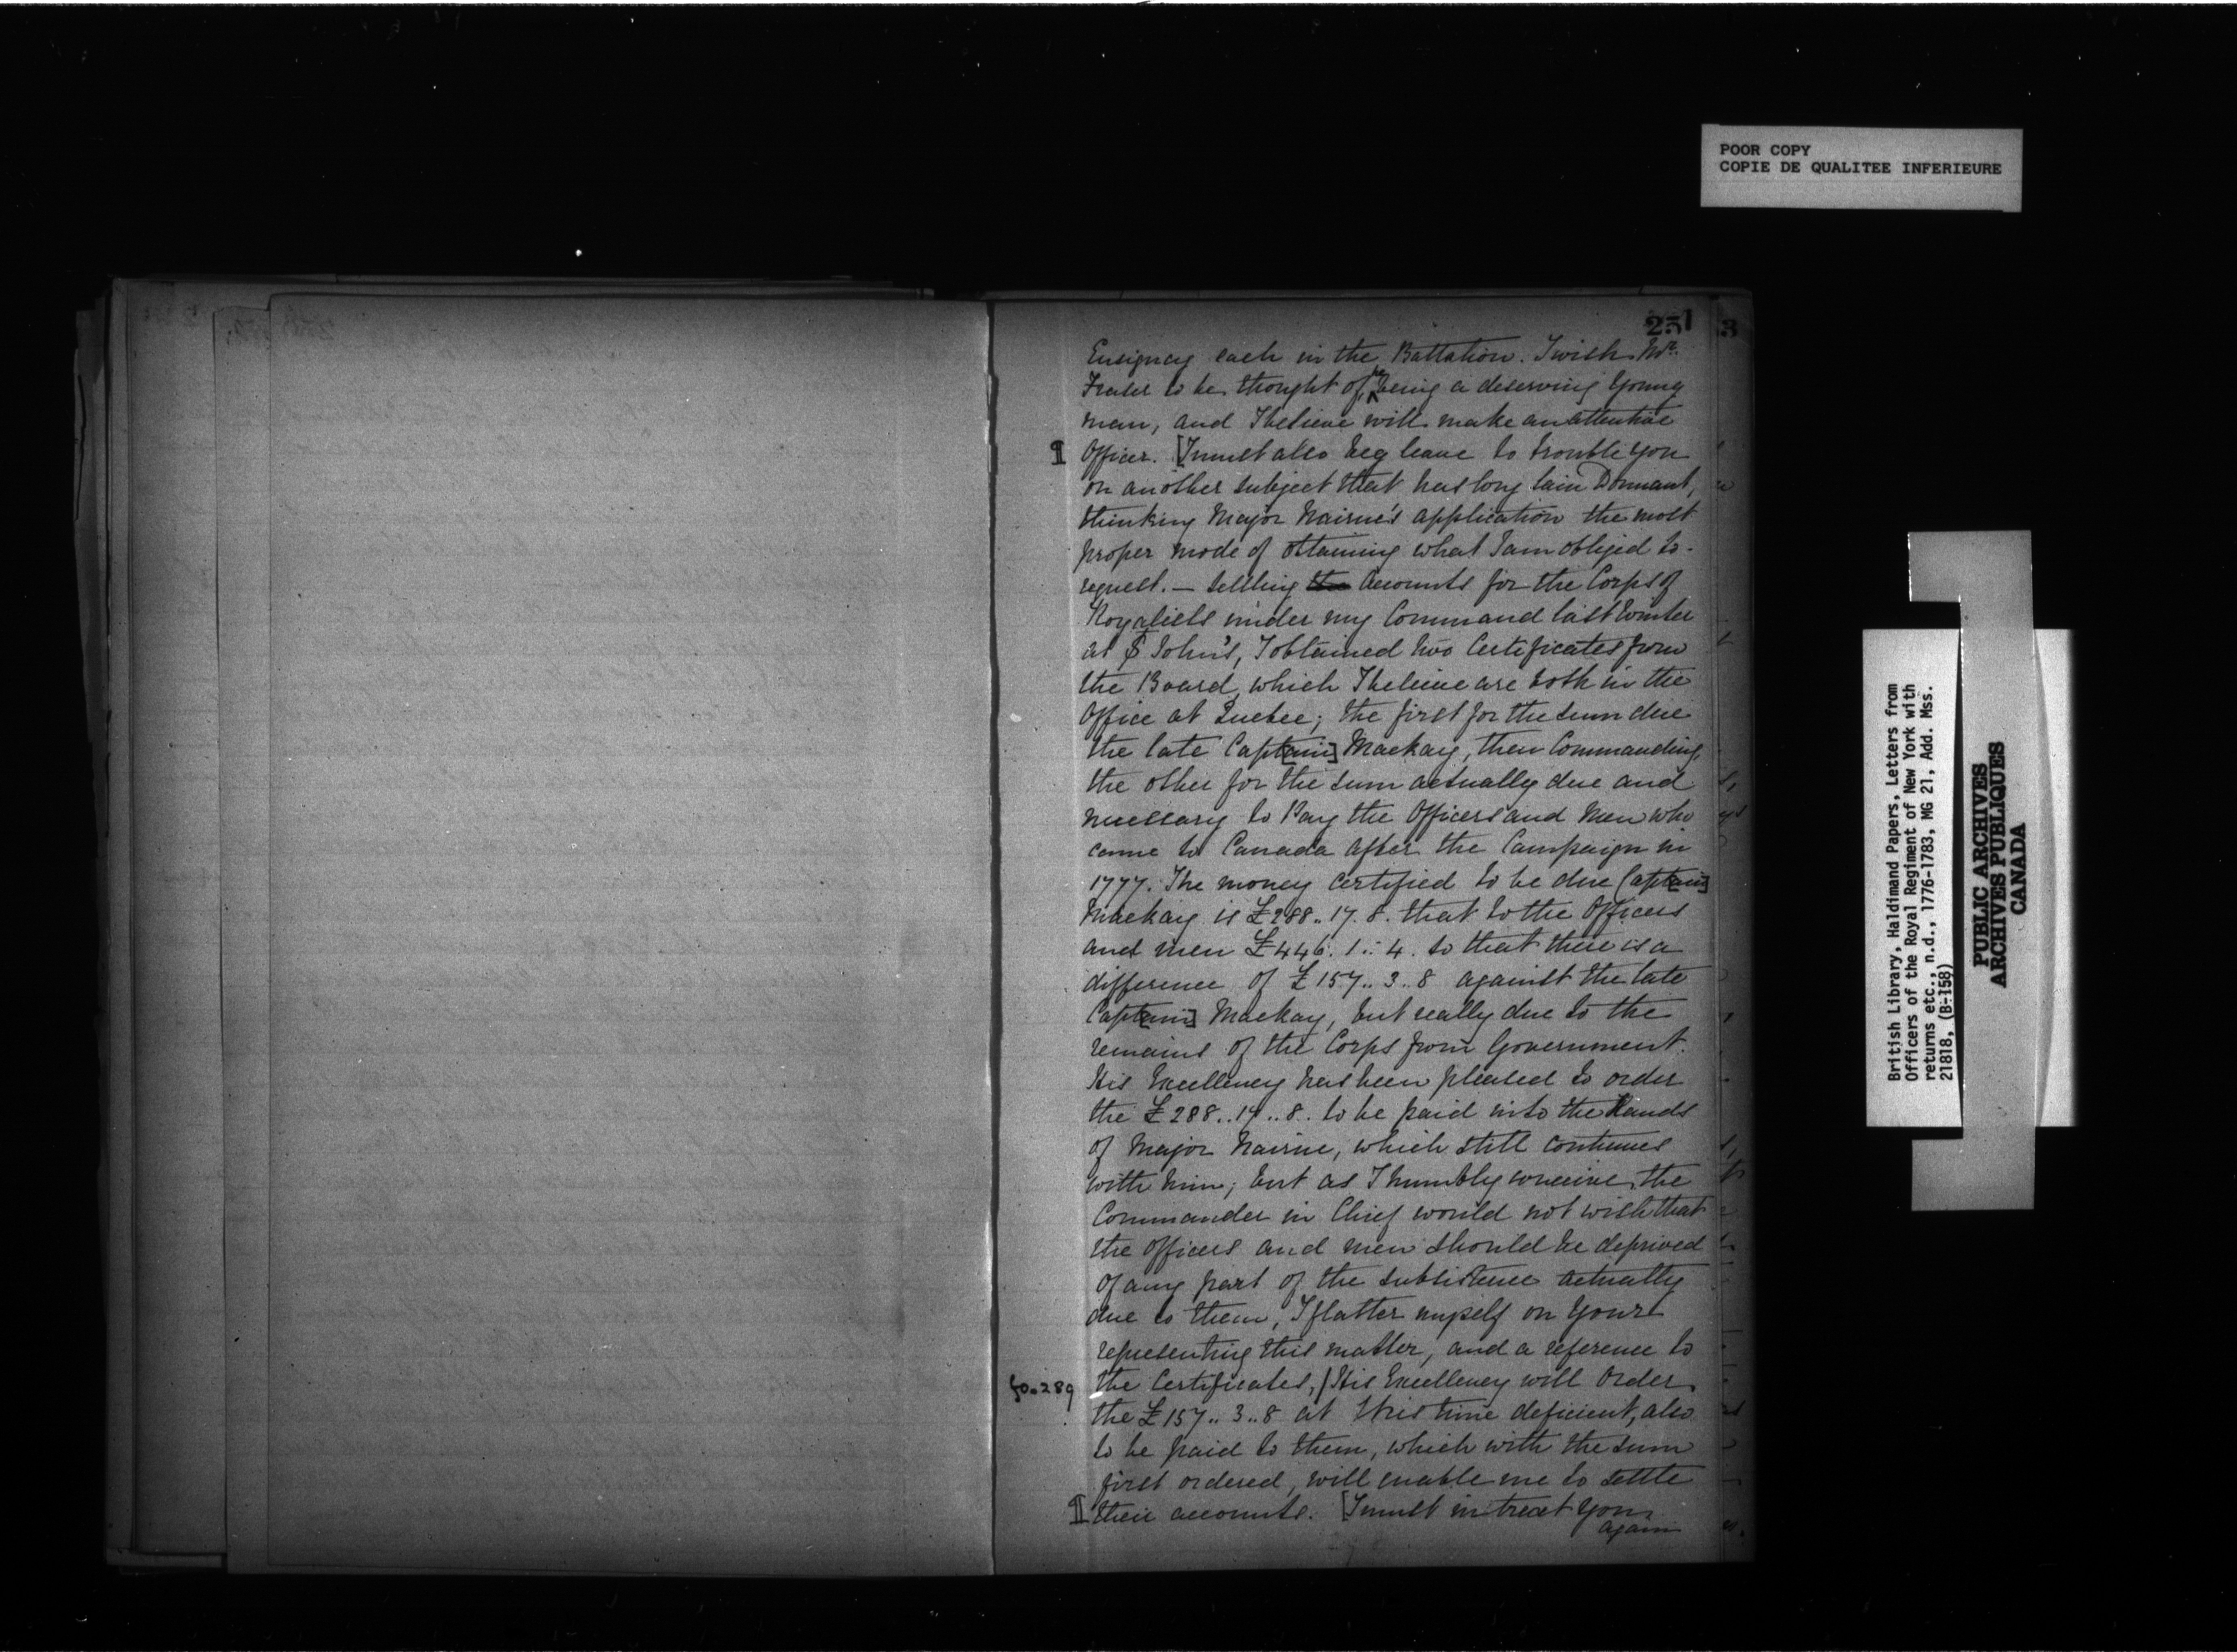 POOR COPY
COPIE DE QUALITEE INFERIEURE
251
3
Ensigncy each in the Battalion. I wish Mr.
Fraser to be thought of, he being a deserving young
man, and I believe will make an attentive
¶ Officer. [I must also beg leave to trouble you
on another subject that has long lain Dormant,
thinking Major Nairne's application the most
proper mode of obtaining what I am obliged to
request. — Settling the Accounts for the Corps of
Royalists under my Command last Winter
at St John's, I obtained two Certificates from
the Board, which I believe are both in the
Office at Quebec; the first for the sum due
the late Capt[ain] Mackay, then Commanding,
the other for the sum actually due and
necessary to Pay the Officers and Men who
came to Canada after the Campaign in
1777. The money certified to be due Capt[ain]
Mackay is £288..17.8. that to the Officers
and men £446.1..4. so that there is a
difference of £157..3..8 against the late
Capt[ain] Mackay, but really due to the
remains of the Corps from Government.
His Excellency has been pleased to order
the £288..17..8. to be paid into the Hands
of Major Nairne, which still continues
with him; but as I humbly conceive the
Commander in Chief would not wish that
the officers and men should be deprived
of any part of the subsistence actually
due to them, I flatter myself on your
representing this matter, and a reference to
fo. 289 the Certificates, / His Excellency will Order
the £157..3..8 at this time deficient, also
to be paid to them, which with the sum
first ordered, will enable me to settle
¶ their accounts. [I must intreat you
again
British Library, Haldimand Papers, Letters from
Officers of the Royal Regiment of New York with
returns etc., n.d., 1776-1783, MG 21, Add. Mss.
21818, (B-158)
PUBLIC ARCHIVES
ARCHIVES PUBLIQUES
CANADA